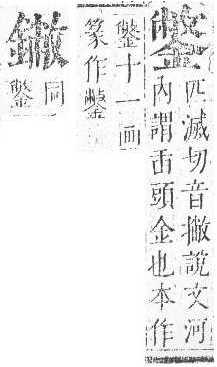 鐅
匹滅切音撇說文河
內謂臿頭金也本作
鐅十一画
篆作鐅
䥕
同
鐅